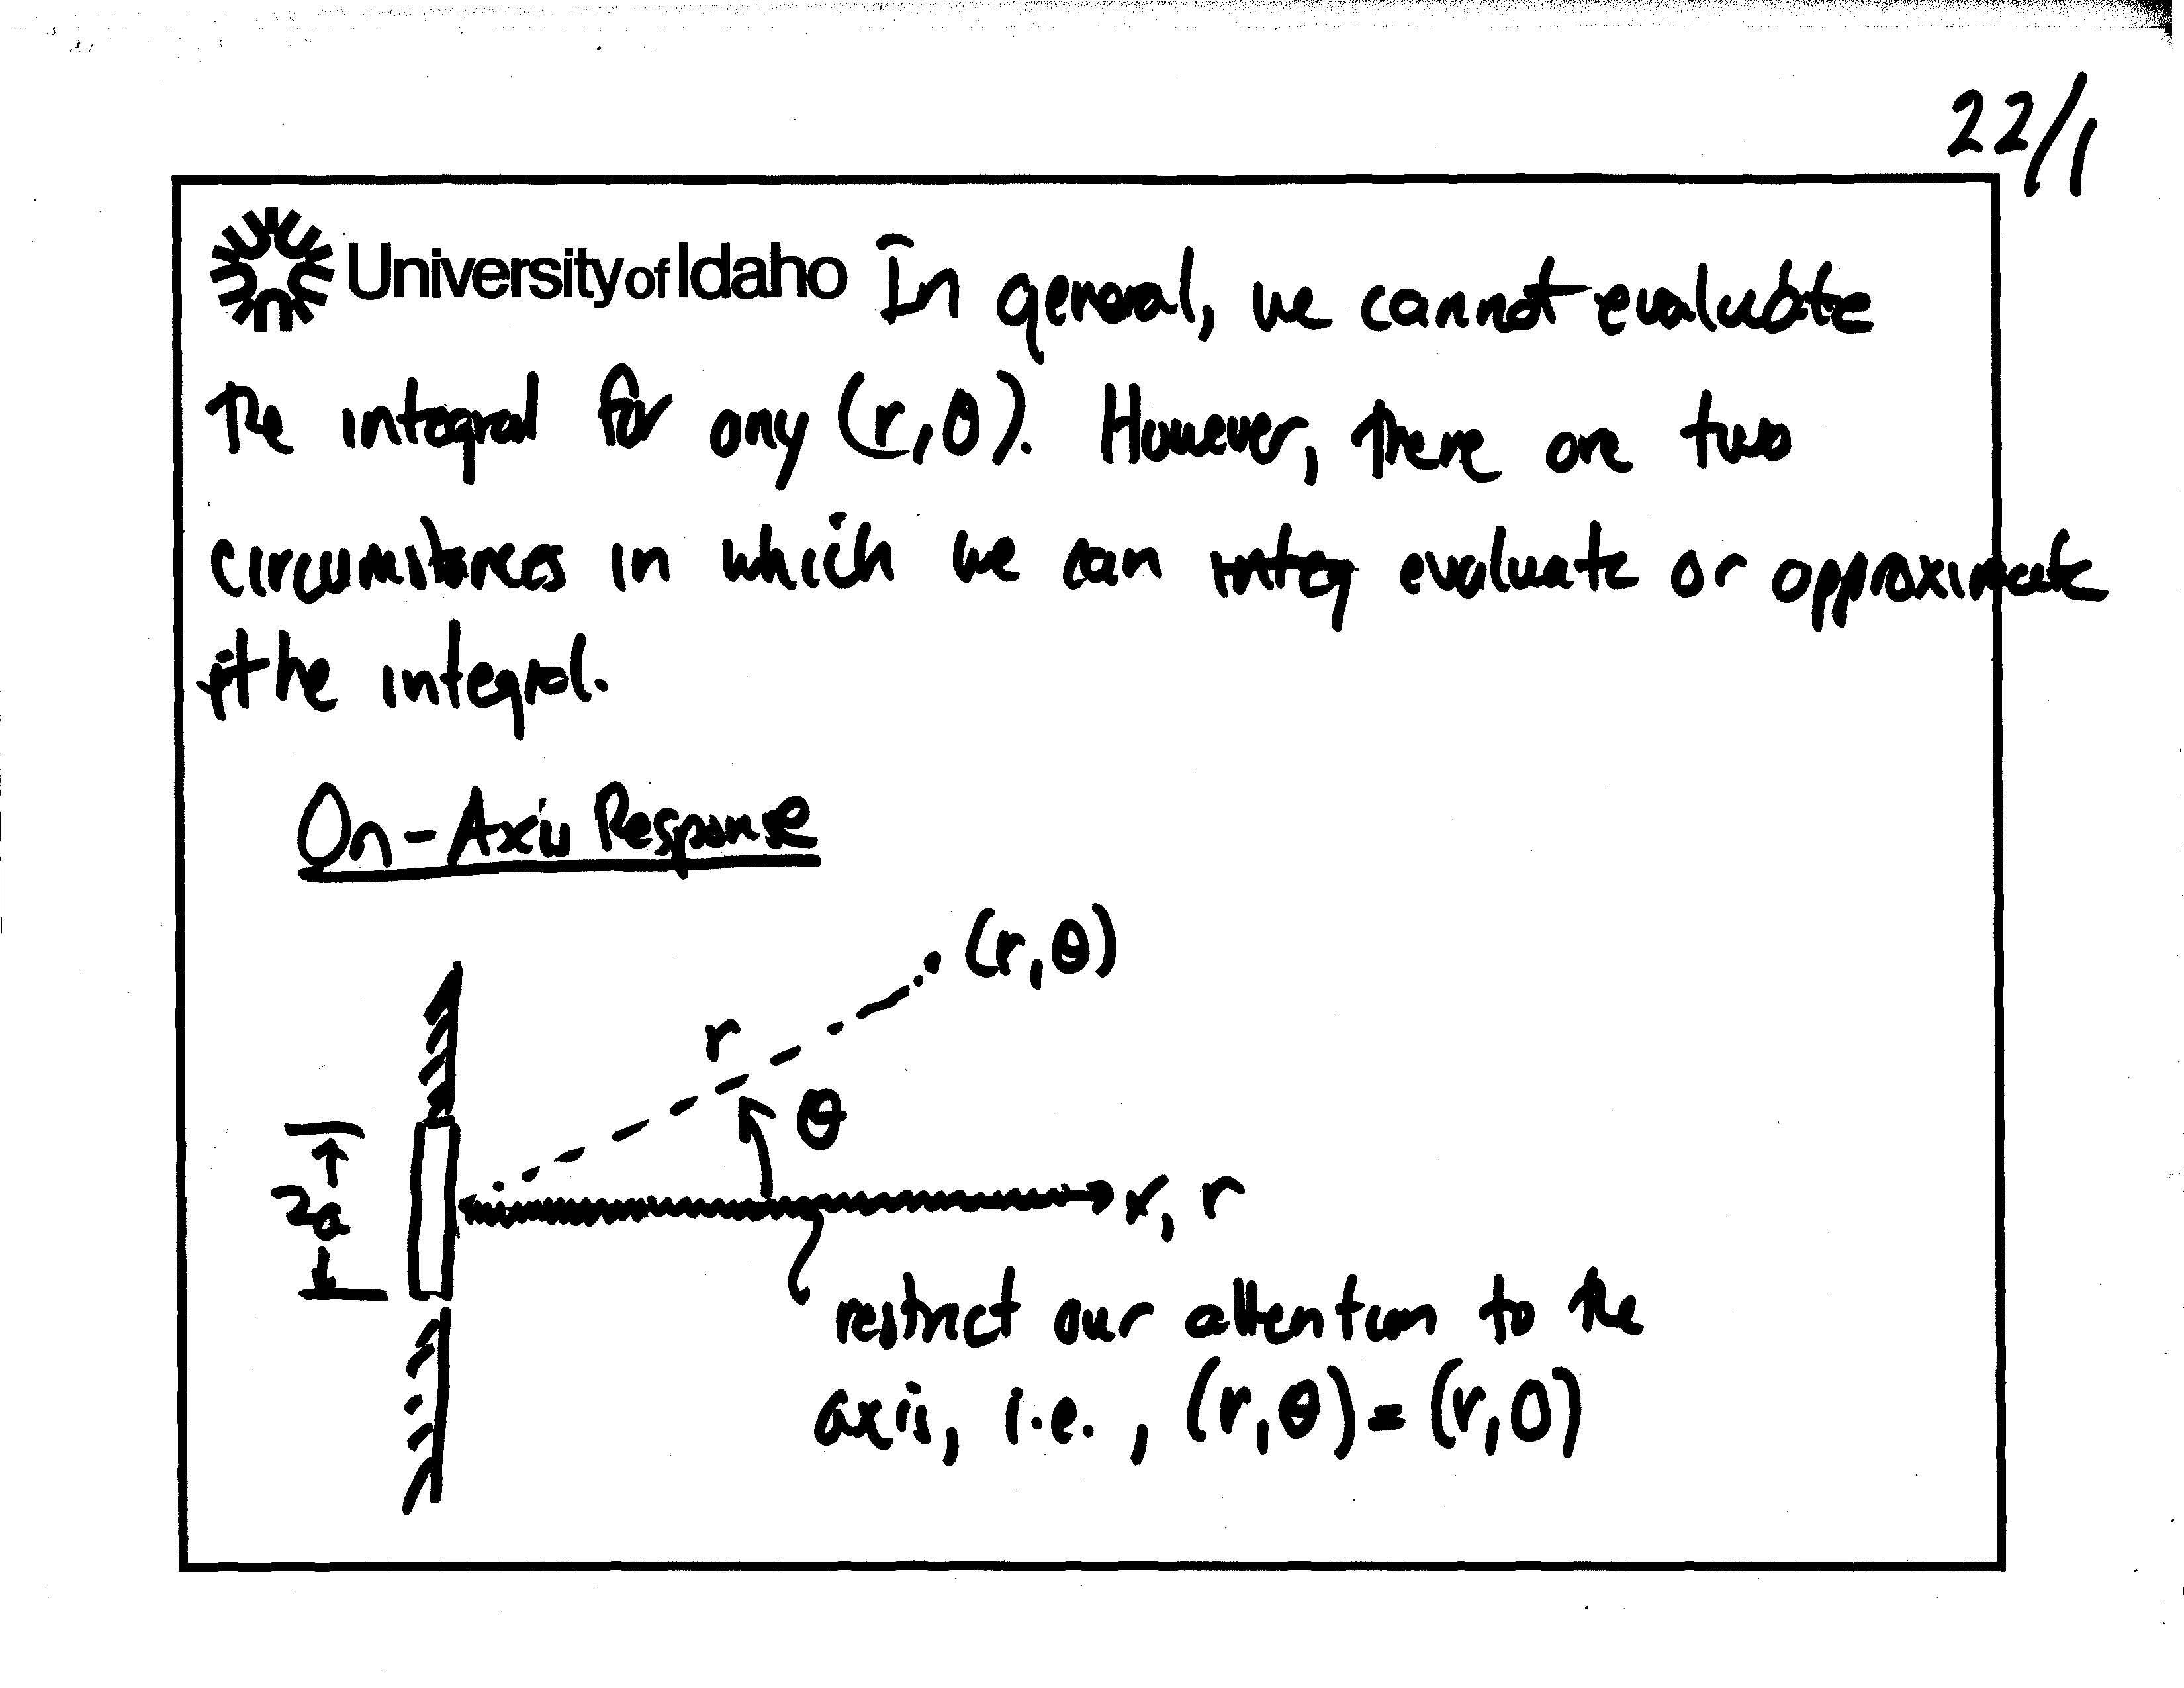 22/1
University of Idaho In general, we cannot evaluate
the integral for any (r,θ). However, there are two
circumstances in which we can integ evaluate or approximate
the integral.
On-Axis Response
(r,θ)
r
θ
2a
x, r
restrict our attention to the
axis, i.e., (r,θ)=(r,0)